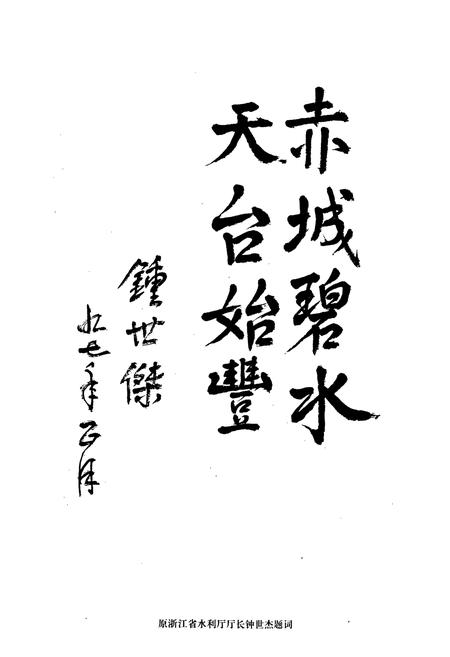 赤城碧水
天台始豐
鍾世傑
九七年正月
原浙江省水利厅厅长钟世杰题词